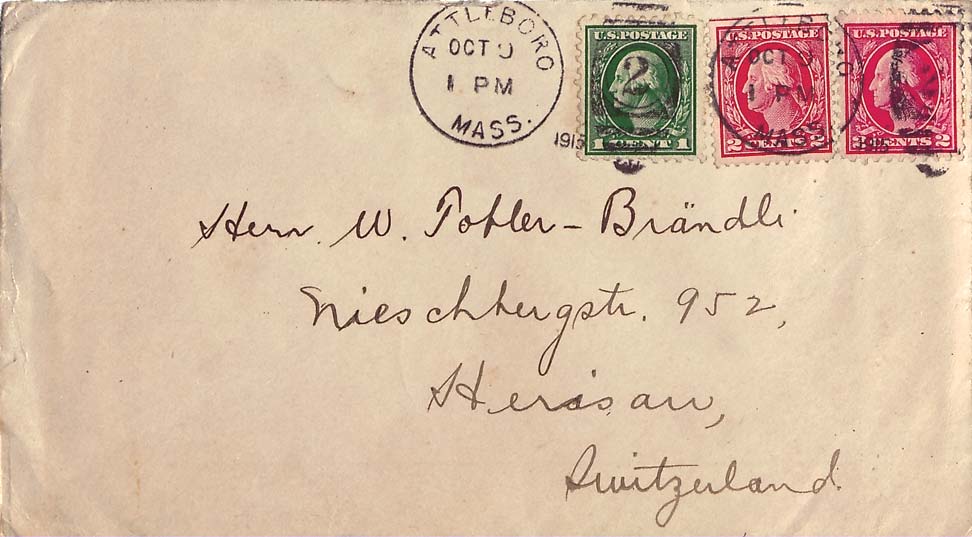 ATTLEBORO
OCT
1 PM
MASS.
1915
U.S. POSTAGE
2
1 CENT 1
U.S. POSTAGE
2 CENTS 2
U.S. POSTAGE
2 CENTS 2
ATTLEBORO
OCT
1 PM
MASS.
1915
Herrn. W. Tobler-Brändli
Nieschbergstr. 952,
Herisau,
Switzerland.